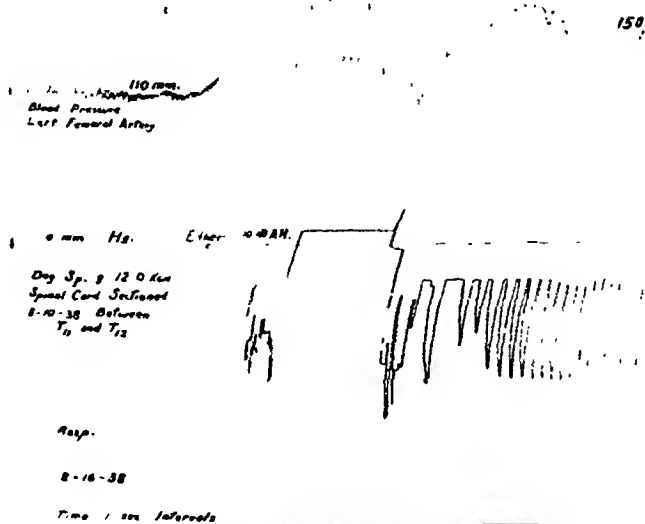 150
110 mm.
Blood Pressure
Left Femoral Artery
0 mm Hg. Ether
Dog Sp. 9 12.0 Kgm
Spinal Cord Sectioned
8-10-38 Between
T11 and T12
Resp.
8-16-38
Time 1 sec Intervals